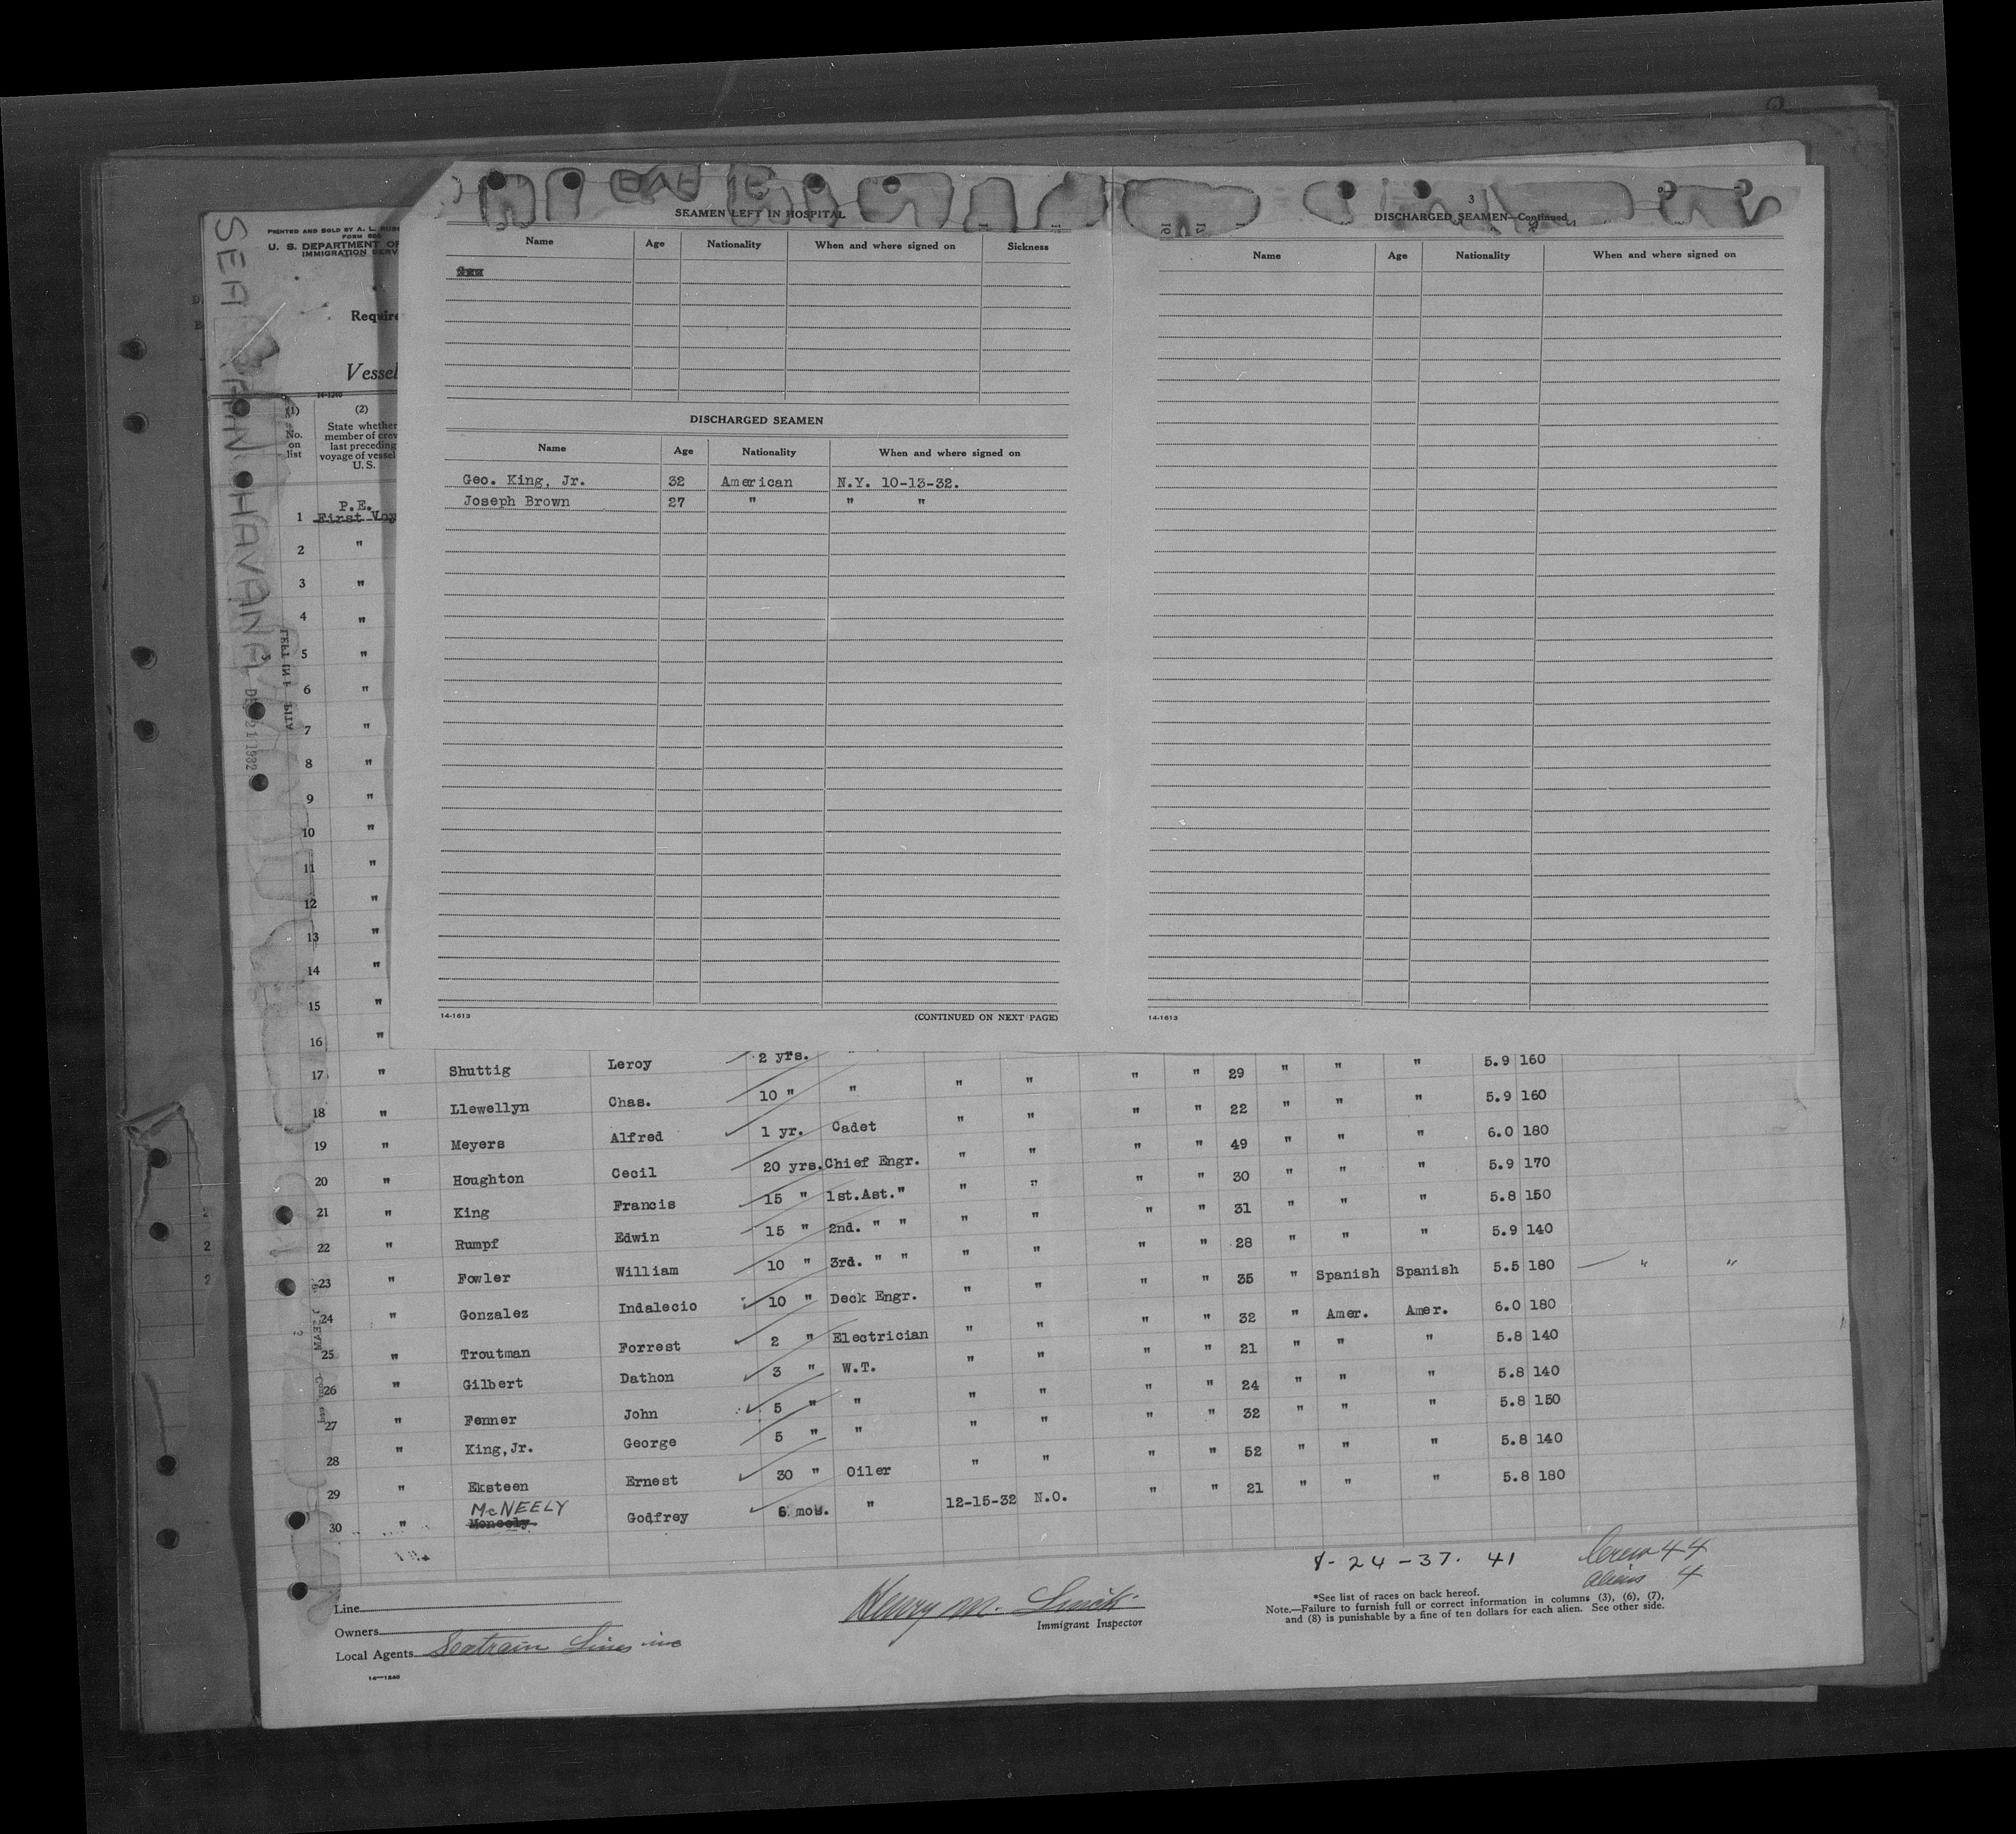 SEATRAIN HAVANA
DEC 21 1932
PRINTED AND SOLD BY A. L.
U. S. DEPARTMENT OF
IMMIGRATION SERV
Require
Vessel
14-1240
(1) (2)
No. on list
State whether
member of crew
last preceding
voyage of vessel
U. S.
P.E.
1 First Voy
2 "
3 "
4 "
5 "
6 "
7 "
8 "
9 "
10 "
11 "
12 "
13 "
14 "
15 "
16 "
SEAMEN LEFT IN HOSPITAL
Name Age Nationality When and where signed on Sickness
DISCHARGED SEAMEN
Name Age Nationality When and where signed on
Geo. King, Jr. 32 American N.Y. 10-13-32.
Joseph Brown 27 " " "
14-1613 (CONTINUED ON NEXT PAGE)
3
DISCHARGED SEAMEN—Continued
Name Age Nationality When and where signed on
14-1613
17 " Shuttig Leroy 2 yrs. " " " " " 29 " " " 5.9 160
18 " Llewellyn Chas. 10 " " " " " " 22 " " " 5.9 160
19 " Meyers Alfred 1 yr. Cadet " " " " 49 " " " 6.0 180
20 " Houghton Cecil 20 yrs. Chief Engr. " " " " 30 " " " 5.9 170
21 " King Francis 15 " 1st.Ast." " " " " 31 " " " 5.8 150
22 " Rumpf Edwin 15 " 2nd. " " " " " " 28 " " " 5.9 140
23 " Fowler William 10 " 3rd. " " " " " " 35 " Spanish Spanish 5.5 180 " "
24 " Gonzalez Indalecio 10 " Deck Engr. " " " " 32 " Amer. Amer. 6.0 180
25 " Troutman Forrest 2 " Electrician " " " " 21 " " " 5.8 140
26 " Gilbert Dathon 3 " W.T. " " " " 24 " " " 5.8 140
27 " Fenner John 5 " " " " " " 32 " " " 5.8 150
28 " King,Jr. George 5 " " " " " " 52 " " " 5.8 140
29 " Eksteen Ernest 30 " Oiler " " " " 21 " " " 5.8 180
McNEELY
30 " Moneely Godfrey 6 mos. " 12-15-32 N.O.
8-24-37. 41
Crew 44
Aliens 4
Line
Owners
Local Agents Seatrain Lines inc
14-1240
Henry M. Smith
Immigrant Inspector
*See list of races on back hereof.
Note.—Failure to furnish full or correct information in columns (3), (6), (7),
and (8) is punishable by a fine of ten dollars for each alien. See other side.